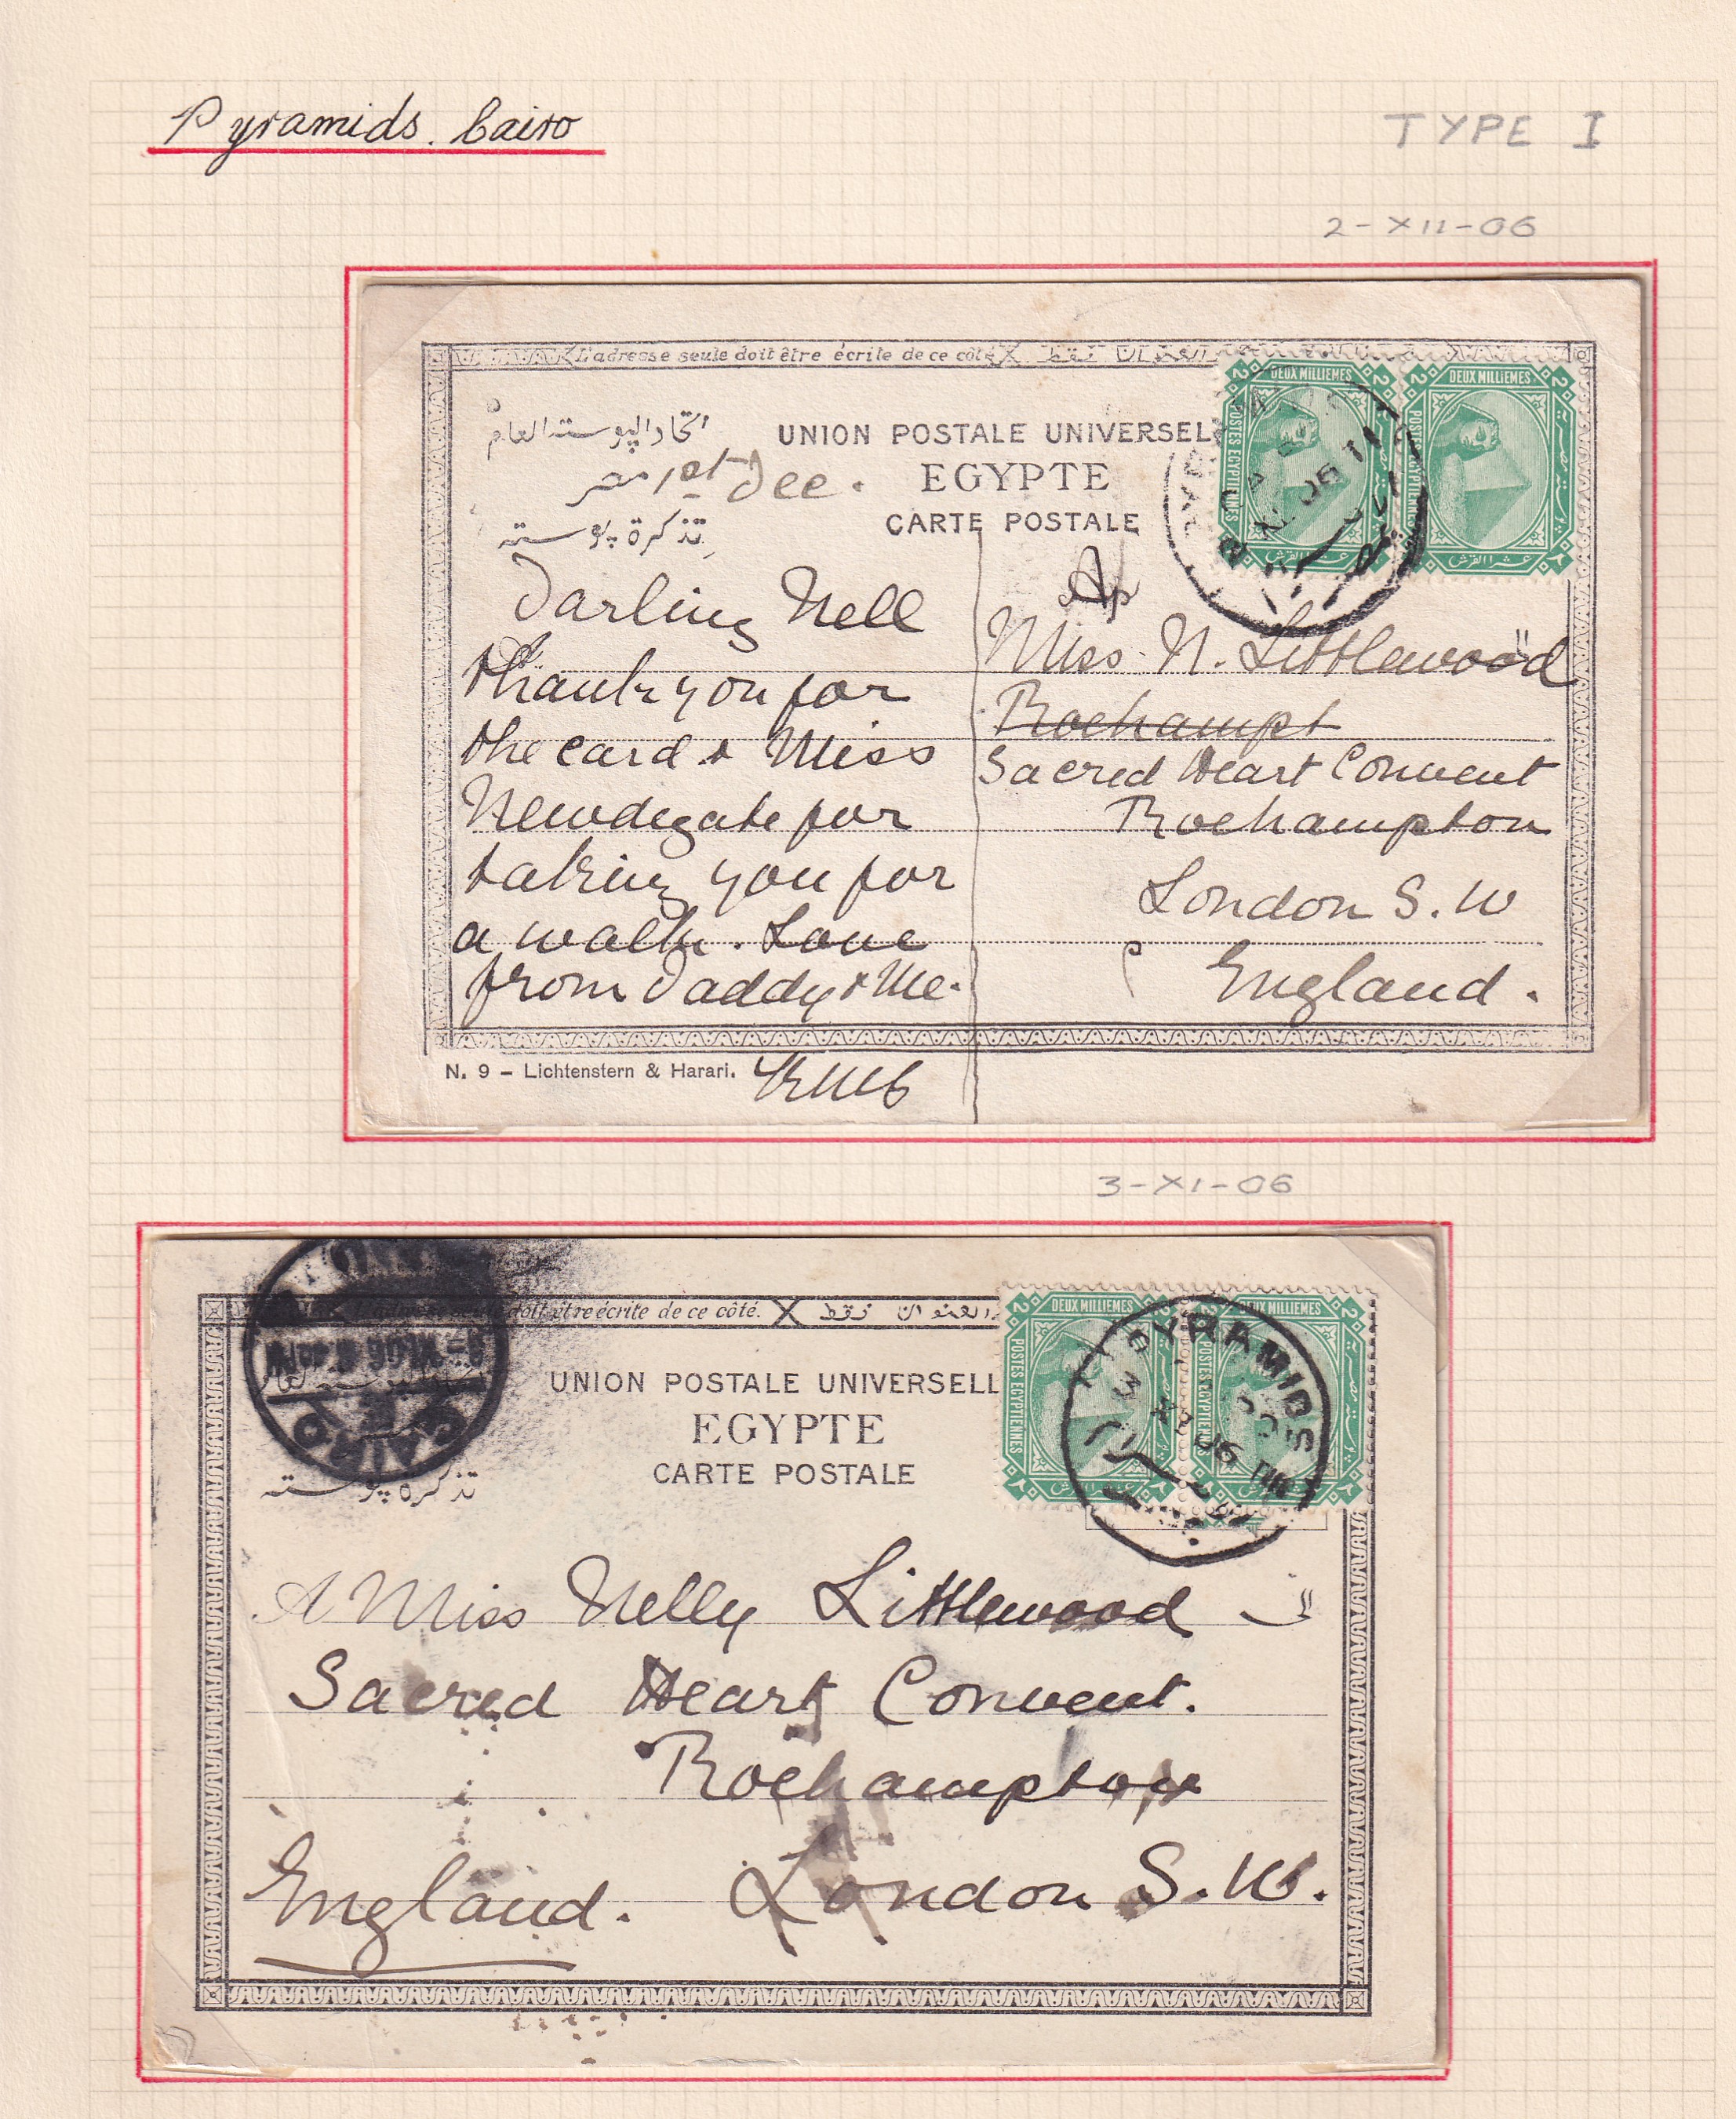 Pyramids. Cairo
TYPE I
2-XII-06
L'adresse seule doit être écrite de ce côté
UNION POSTALE UNIVERSEL
EGYPTE
CARTE POSTALE
اتحاد البوسته العام
مصر
تذكرة بوسته
1st Dec.
DEUX MILLIEMES
POSTES EGYPTIENNES
عشر القرش
DEUX MILLIEMES
عشر القرش
Darling Nell
thank you for
the card & Miss
Newdegate for
taking you for
a walk. Love
from Daddy & Me.
Miss N. Littlewood
Roehampt
Sacred Heart Convent
Roehampton
London S.W
England.
N. 9 – Lichtenstern & Harari.
3-XI-06
L'adresse seule doit être écrite de ce côté.
العنوان فقط
UNION POSTALE UNIVERSELL
EGYPTE
CARTE POSTALE
تذكرة بوسته
CAIRO
DEUX MILLIEMES
POSTES EGYPTIENNES
DEUX MILLIEMES
PYRAMIDS
A Miss Nelly Littlewood
Sacred Heart Convent.
Roehampton
England. London S.W.